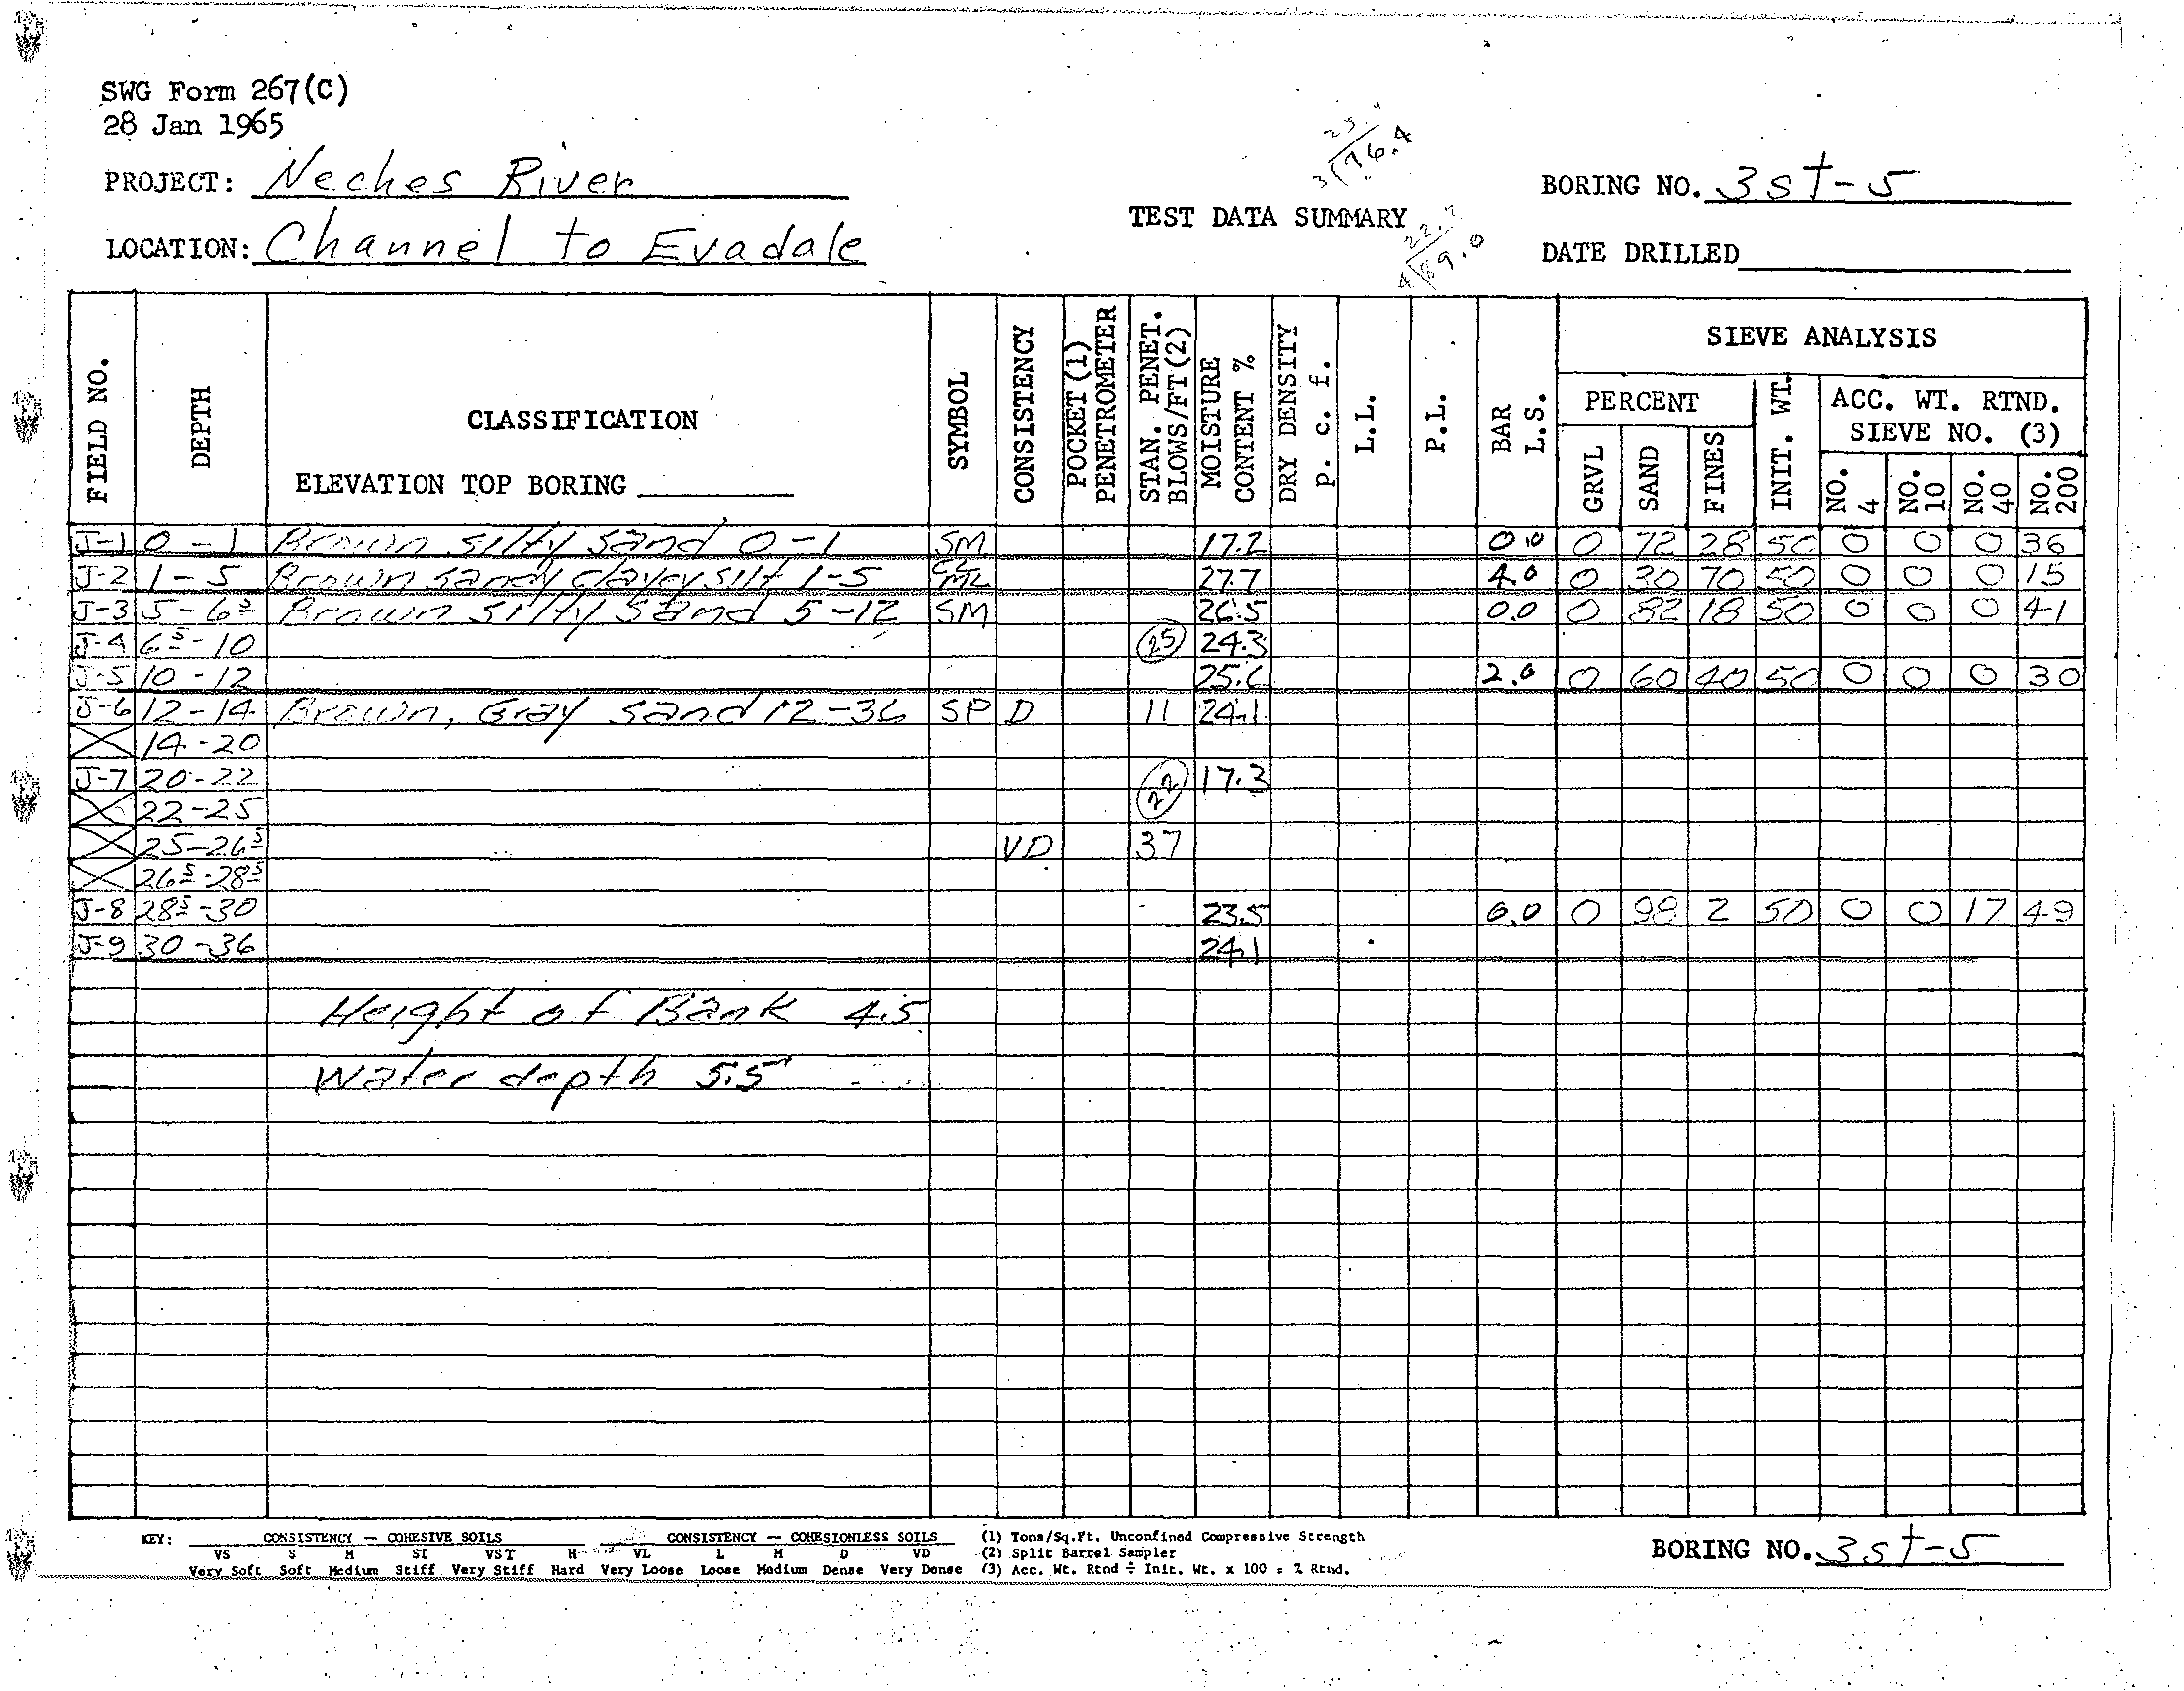 SWG Form 267(C)
28 Jan 1965
PROJECT: Neches River
LOCATION: Channel to Evadale
TEST DATA SUMMARY
25.
3/76.4
22.7
4/89.0
BORING NO. 3st-5
DATE DRILLED
FIELD NO. DEPTH CLASSIFICATION SYMBOL CONSISTENCY POCKET (1) PENETROMETER STAN. PENET. BLOWS/FT(2) MOISTURE CONTENT % DRY DENSITY p. c. f. L.L. P.L. BAR L.S. SIEVE ANALYSIS
PERCENT INIT. WT. ACC. WT. RTND. SIEVE NO. (3)
ELEVATION TOP BORING
GRVL SAND FINES NO. 4 NO. 10 NO. 40 NO. 200
J-1 0-1 Brown silty sand 0-1 SM 17.2 0.0 0 72 28 50 0 0 0 36
J-2 1-5 Brown sandy clayey silt 1-5 ML 27.7 4.0 0 30 70 50 0 0 0 15
J-3 5-6⁵ Brown silty sand 5-12 SM 26.5 0.0 0 82 18 50 0 0 0 41
J-4 6⁵-10 25 24.3
J-5 10-12 25.6 2.0 0 60 40 50 0 0 0 30
J-6 12-14 Brown, Gray sand 12-36 SP D 11 24.1
14-20
J-7 20-22 22 17.3
22-25
25-26⁵ VD 37
26⁵-28⁵
J-8 28⁵-30 23.5 0.0 0 98 2 50 0 0 17 49
J-9 30-36 24.1
Height of Bank 4.5
Water depth 5.5
KEY: CONSISTENCY — COHESIVE SOILS CONSISTENCY — COHESIONLESS SOILS (1) Tons/Sq.Ft. Unconfined Compressive Strength
VS S M ST VST H VL L M D VD (2) Split Barrel Sampler
Very Soft Soft Medium Stiff Very Stiff Hard Very Loose Loose Medium Dense Very Dense (3) Acc. Wt. Rtnd ÷ Init. Wt. x 100 = % Rtnd.
BORING NO. 3st-5